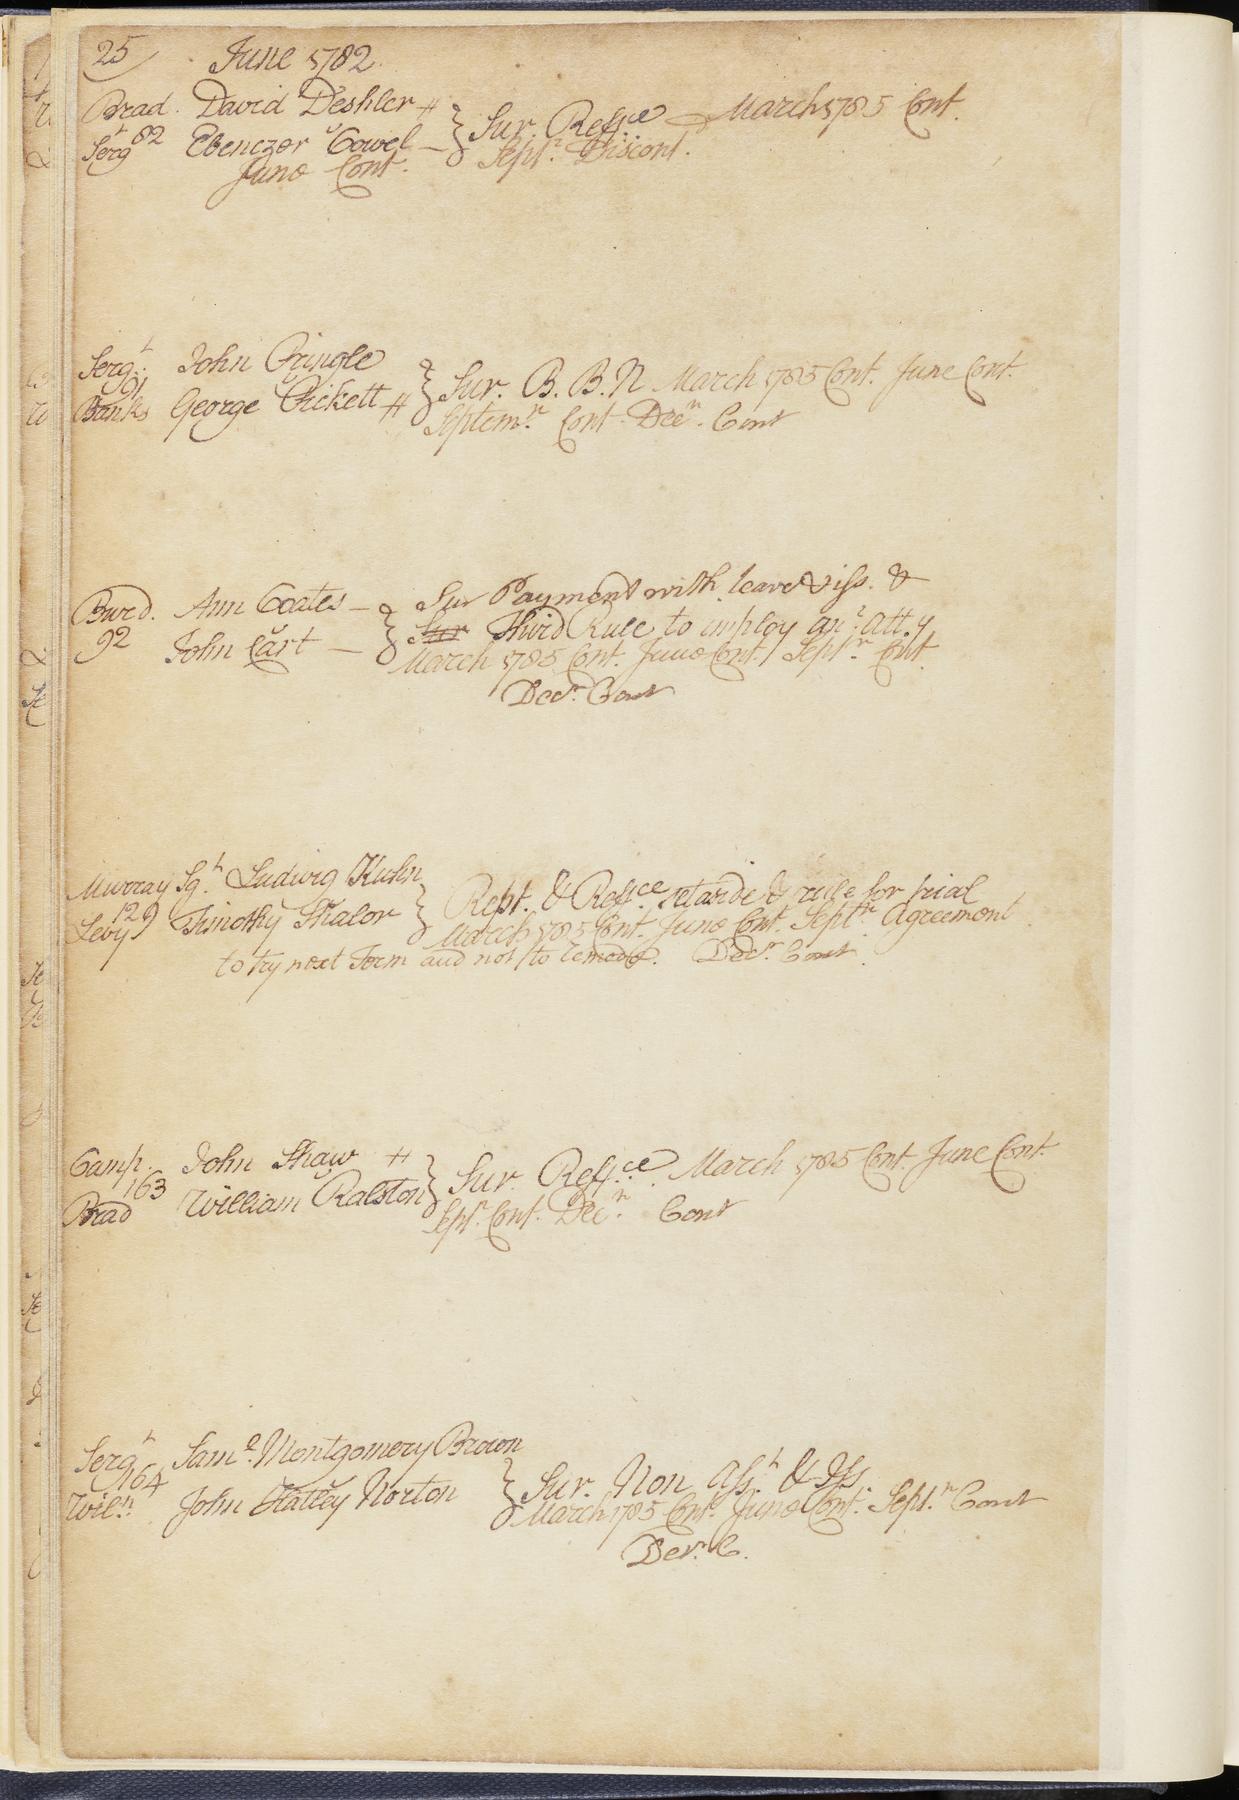 25 June 1782
Brad. David Deshler # } Sur. Reff:ce March 1785 Cont.
Sergt 82 Ebenezer Cowel — Septr. Discont.
June Cont.
Sergt. John Pringle } Sur. B. B. N March 1785 Cont. June Cont.
91
Banks George Pickett # Septemr. Cont. Decr. Cont
Burd. Ann Coates — } Sur Payment with leave & iss. &
92 John Cart — Sur Third Rule to imploy anr. Att.y
March 1785 Cont. June Cont. Septr. Cont.
Decr. Cont
Murray Sgt. Ludwig Kuhn } Rept. & Reff:ce retarded & rule for trial
129
Levy Timothy Shalor March 1785 Cont. June Cont. Septr. Agreement
to try next Term and not to remove. Decr. Cont.
Camp. John Shaw # } Sur. Reff:ce. March 1785 Cont. June Cont.
163
Brad William Ralston Septr. Cont. Decr. Cont
Sergt Saml. Montgomery Brown
164 } Sur. Non Asst. & Iss.
Wiln. John Hatley Norton March 1785 Cont. June Cont. Septr. Cont
Decr. C.